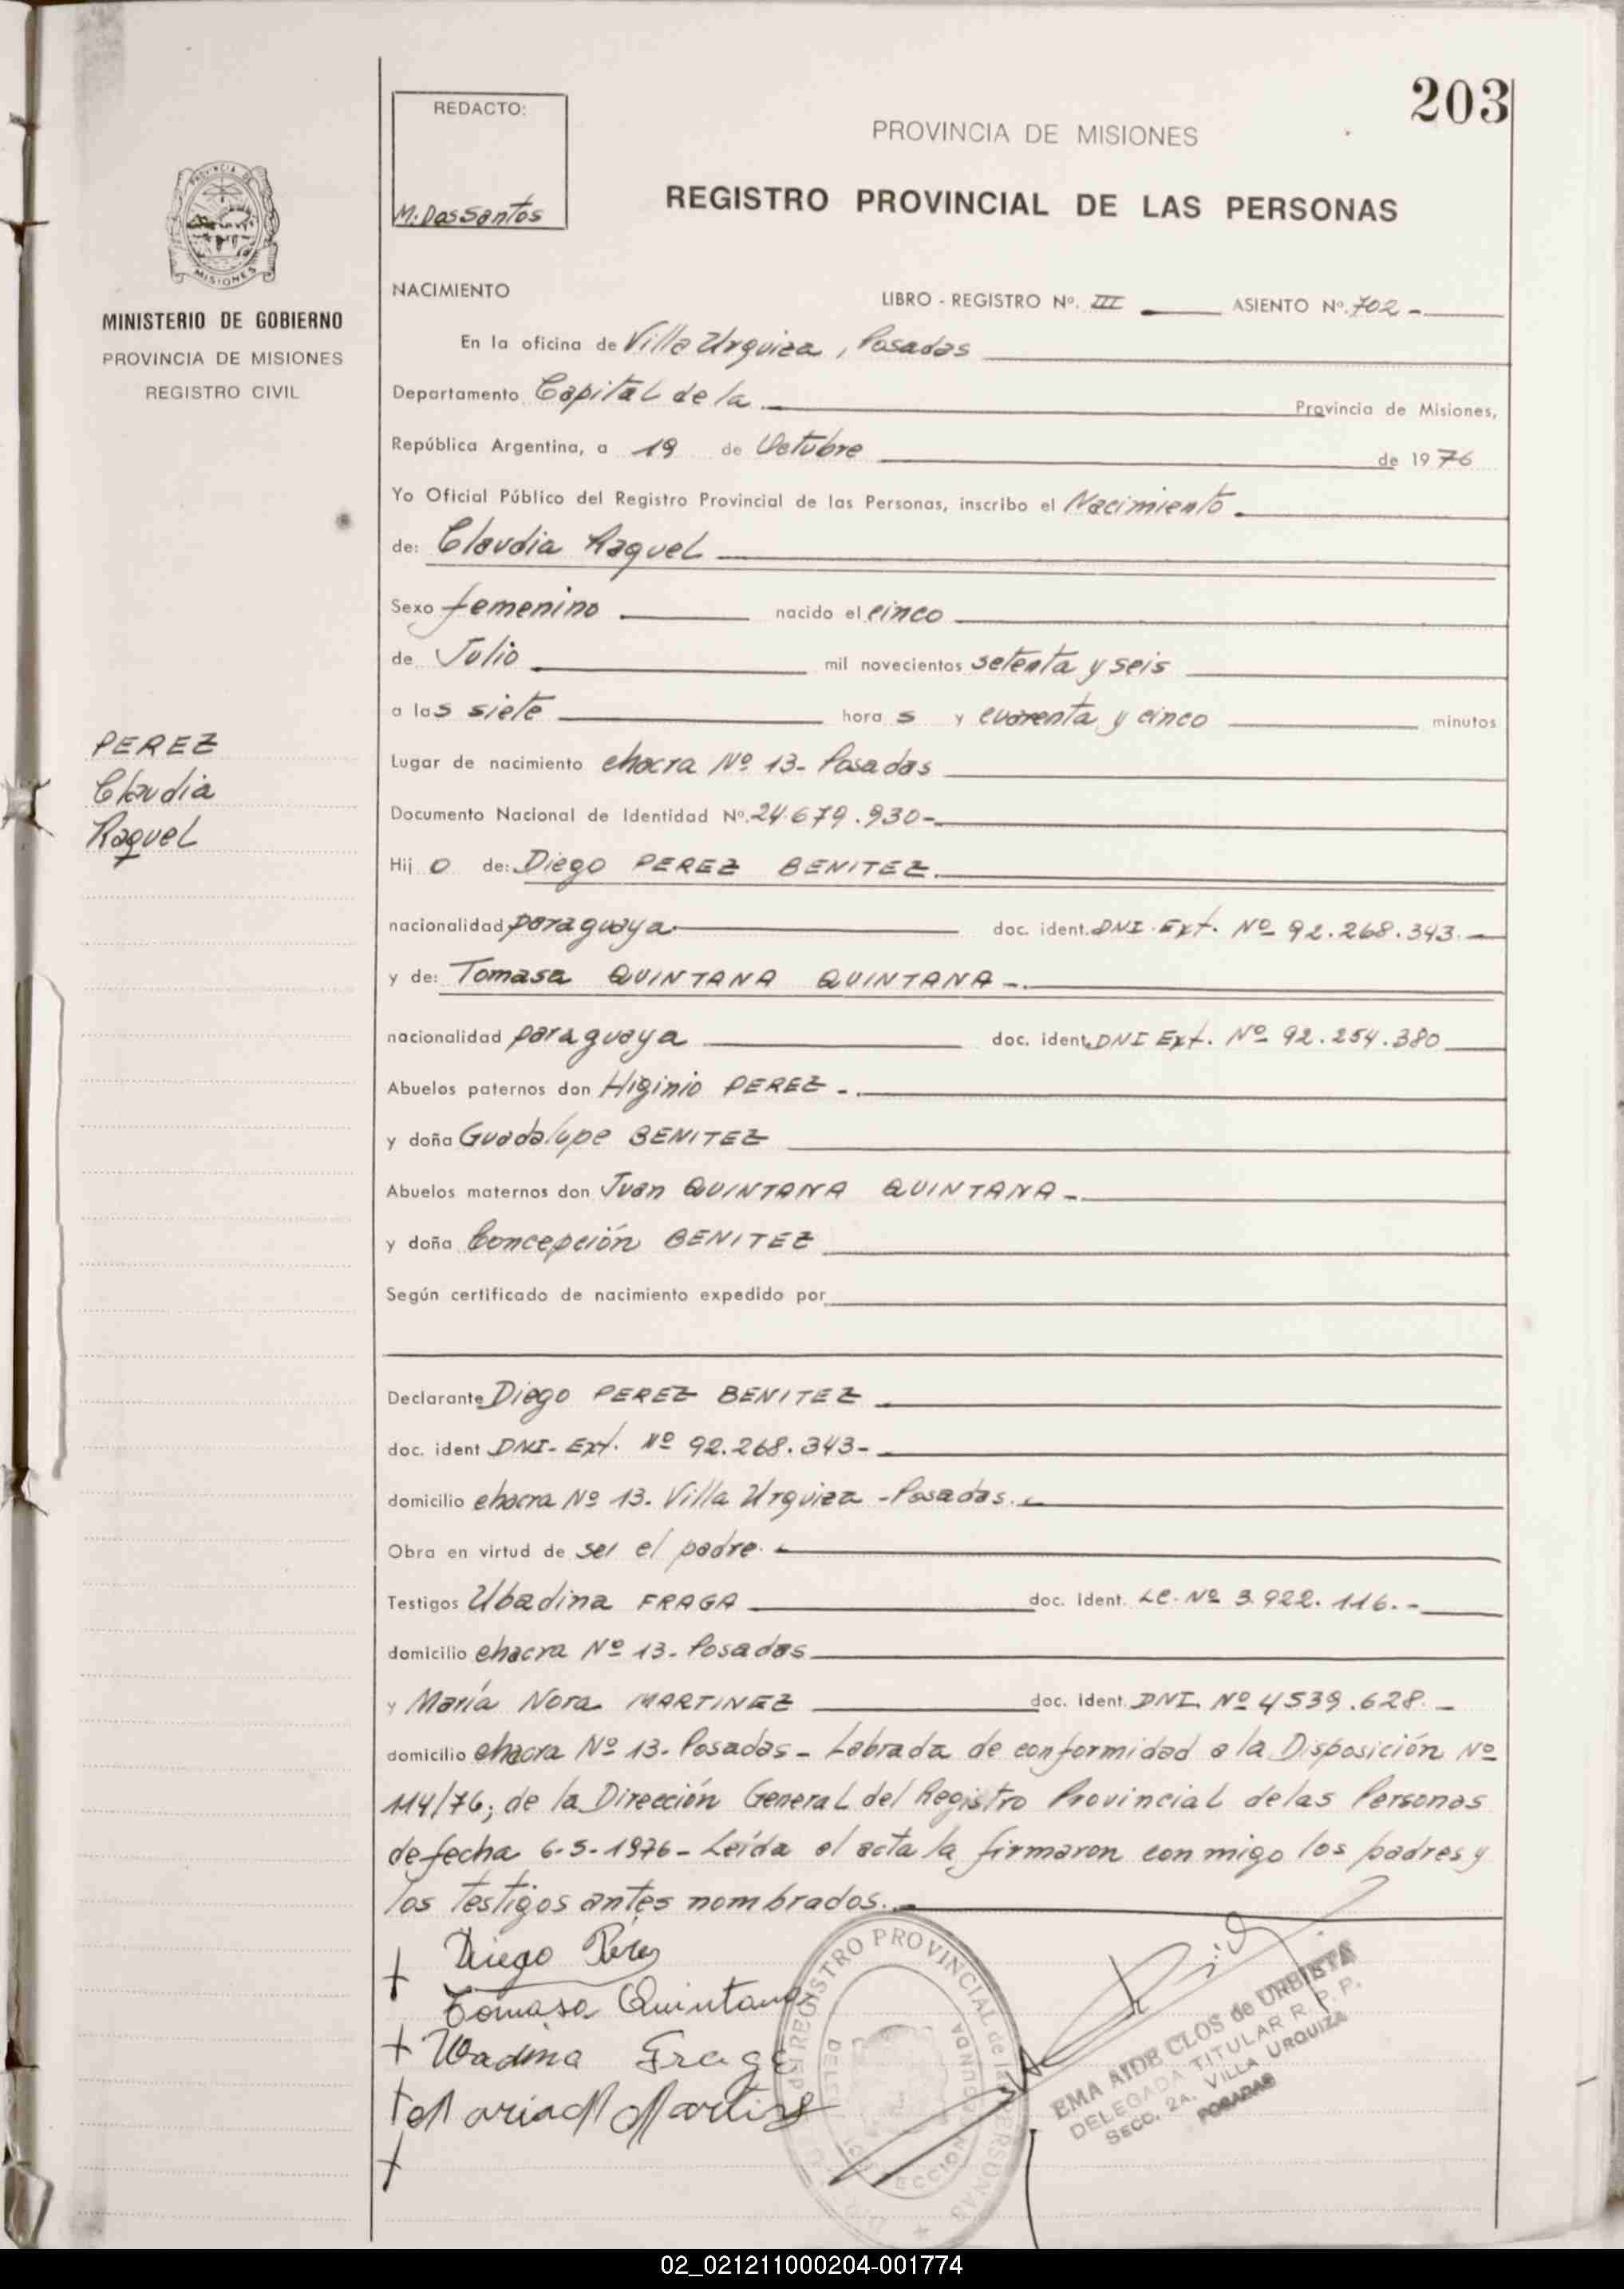 203
REDACTO:
M. DosSantos
PROVINCIA DE MISIONES
REGISTRO PROVINCIAL DE LAS PERSONAS
PROVINCIA DE
MISIONES
MINISTERIO DE GOBIERNO
PROVINCIA DE MISIONES
REGISTRO CIVIL
PEREZ
Claudia
Raquel
NACIMIENTO
LIBRO - REGISTRO Nº. III ASIENTO Nº. 702 -
En la oficina de Villa Urquiza, Posadas
Departamento Capital de la Provincia de Misiones,
República Argentina, a 19 de Octubre de 1976
Yo Oficial Público del Registro Provincial de las Personas, inscribo el Nacimiento.
de: Claudia Raquel
Sexo femenino nacido el cinco
de Julio mil novecientos setenta y seis
a las siete horas y cuarenta y cinco minutos
Lugar de nacimiento chacra Nº 13- Posadas
Documento Nacional de Identidad Nº. 24.679.930-
Hij a de: Diego PEREZ BENITEZ.
nacionalidad paraguaya doc. ident. DNI. Ext. Nº 92.268.343.-
y de: Tomasa QUINTANA QUINTANA -.
nacionalidad paraguaya doc. ident. DNI Ext. Nº 92.254.380
Abuelos paternos don Higinio PEREZ -.
y doña Guadalupe BENITEZ
Abuelos maternos don Juan QUINTANA QUINTANA -
y doña Concepción BENITEZ
Según certificado de nacimiento expedido por
Declarante Diego PEREZ BENITEZ
doc. ident DNI- Ext. Nº 92.268.343-
domicilio chacra Nº 13. Villa Urquiza - Posadas.
Obra en virtud de ser el padre.
Testigos Ubadina FRAGA doc. Ident. LC. Nº 3.922.116.-
domicilio chacra Nº 13. Posadas
y María Nora MARTINEZ doc. Ident. DNI. Nº 4539.628.-
domicilio chacra Nº 13. Posadas - Labrada de conformidad a la Disposición Nº
114/76; de la Dirección General del Registro Provincial de las Personas
de fecha 6-5-1976 - Leída el acta la firmaron conmigo los padres y
los testigos antes nombrados.
Diego Pérez
Tomasa Quintana
Ubadina Fraga
Maria N Martinez
REGISTRO PROVINCIAL de las PERSONAS
EMA AIDE CLOS de URBIETA
DELEGADA TITULAR R. P. P.
SECC. 2A. VILLA URQUIZA
POSADAS
02_021211000204-001774